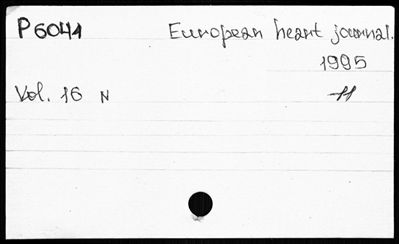 P6041 European heart journal.
1995
Vol. 16 N 11